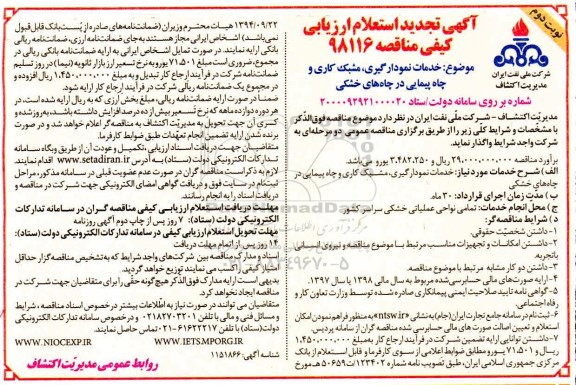 نوبت دوم
آگهی تجدید استعلام ارزیابی
کیفی مناقصه ۹۸۱۱۶
موضوع: خدمات نمودارگیری، مشبک کاری و
چاه پیمایی در چاه‌های خشکی
شرکت ملی نفت ایران
مدیریت اکتشاف
شماره بر روی سامانه دولت/ستاد ۲۰۰۰۰۹۲۹۲۱۰۰۰۰۲۰
مدیریت اکتشاف – شرکت ملّی نفت ایران در نظر دارد موضوع مناقصه فوق‌الذکر
با مشخصات و شرایط کلّی زیر را از طریق برگزاری مناقصه عمومی (دو مرحله‌ای) به
شرکت واجد شرایط واگذار نماید.
برآورد مناقصه ۲۹۰،۰۰۰،۰۰۰،۰۰۰ ریال و ۳،۴۸۲،۲۵۰ یورو می‌باشد.
الف) شرح خدمات مورد نیاز: خدمات نمودارگیری، مشبک کاری و چاه پیمایی در
چاه‌های خشکی
ب) مدت زمان اجرای قرارداد: ۳۰ ماه.
ج) محل انجام خدمات: تمامی نواحی عملیاتی خشکی سراسر کشور
د) شرایط مناقصه‌گر:
۱- داشتن شخصیّت حقوقی
۲- داشتن امکانات و تجهیزات مناسب مرتبط با موضوع مناقصه و نیروی انسانی
باتجربه.
۳- داشتن دو کار مشابه مرتبط با موضوع مناقصه.
۴- ارایه صورت‌های مالی حسابرسی شده مربوط به سال مالی ۱۳۹۸ یا سال ۱۳۹۷.
۵- گواهی نامه تایید صلاحیت ایمنی پیمانکاری صادره شده توسط وزارت تعاون کار و
رفاه اجتماعی.
۶- ثبت نام در سامانه جامع تجارت ایران (جام) به نشانی ntsw.ir به منظور فراهم نمودن امکان
استعلام و تعیین اصالت صورت های مالی حسابرسی شده مناقصه گران از سامانه پردیس.
۷- داشتن توانایی ارایه تضمین شرکت در فرآیند ارجاع کار به مبلغ ۱،۴۵۰،۰۰۰،۰۰۰
ریال و ۷۱،۵۰۱ یورو مطابق ضوابط اعلامی از سوی کارفرما و قابل استعلام از بانک
مرکزی جمهوری اسلامی ایران، طبق تصویب نامه شماره ۱۲۳۴۰۲/ت ۵۰۶۵۹ ه مورخ
۱۳۹۴/۰۹/۲۲ هیات محترم وزیران (ضمانت‌نامه‌های صادره از پُست بانک قابل قبول
نمی‌باشد) اشخاص ایرانی مجاز هستند به جای ضمانت‌نامه ارزی، ضمانت‌نامه ریالی
بانکی ارایه نمایند. در صورت تمایل اشخاص ایرانی به ارایه ضمانت‌نامه بانکی ریالی در
مجموع، ضروری است مبلغ ۷۱،۵۰۱ یورو به نرخ تسعیر ارز بازار ثانویه (نیما) در روز تسلیم
ضمانت‌نامه شرکت در فرآیند ارجاع کار تبدیل و به مبلغ ۱،۴۵۰،۰۰۰،۰۰۰ ریال افزوده و
در مجموع یک ضمانت‌نامه ریالی شرکت در فرآیند ارجاع کار ارایه شود.
ضمناً در صورت ارایه ضمانت‌نامه ریالی، مبلغ بخش ارزی که به ریال ارایه شده است، در
هر دوره دوازده ماهه که نرخ تسعیر بیش از ده درصد افزایش داشته باشد، به‌روز شده و
کسری آن جهت تحویل به مدیریّت اکتشاف به مناقصه گر اعلام خواهد شد و در صورت
برنده شدن ارایه تضمین انجام تعهّدات طبق ضوابط کارفرما.
متقاضیان جهت دریافت اسناد ارزیابی، تکمیل و عودت آن از طریق وبگاه سامانه
تدارکات الکترونیکی دولت (ستاد) به آدرس www.setadiran.ir اقدام نمایند.
لازم به ذکر است مناقصه گران در صورت عدم عضویت قبلی در سامانه مذکور، مراحل
ثبتنام در سایت فوق و دریافت گواهی امضای الکترونیکی جهت شرکت در مناقصه و
دریافت اسناد را به انجام رسانند.
مهلت دریافت استعلام ارزیابی کیفی مناقصه گران در سامانه تدارکات
الکترونیکی دولت (ستاد): ۷ روز پس از چاپ دوم آگهی روزنامه
مهلت تحویل استعلام ارزیابی کیفی در سامانه تدارکات الکترونیکی دولت (ستاد):
۱۴ روز پس از اتمام مهلت دریافت
اسناد و مدارک مناقصه بین شرکت‌های واجد شرایط که به تشخیص مناقصه گزار حداقل
امتیاز کیفی را کسب می نمایند توزیع خواهد گردید.
بدیهی است ارایه مدارک فوق‌الذکر هیچگونه حقی را برای متقاضیان جهت شرکت در
مناقصه ایجاد نخواهد کرد.
متقاضیان می توانند در صورت نیاز به اطّلاعات بیشتر در خصوص اسناد مناقصه، شرایط
و مسائل فنی و مالی با تلفن ۰۲۱۸۲۷۰۳۲۰۱ و درخصوص سامانه تدارکات الکترونیکی
دولت (ستاد) با تلفن ۶۱۶۲۲۲۱۷-۰۲۱ تماس حاصل نمایند.
WWW.IETS.MPORG.IR
WWW.NIOCEXP.IR
شناسه آگهی: ۱۱۵۱۸۶۶
روابط عمومی مدیریّت اکتشاف